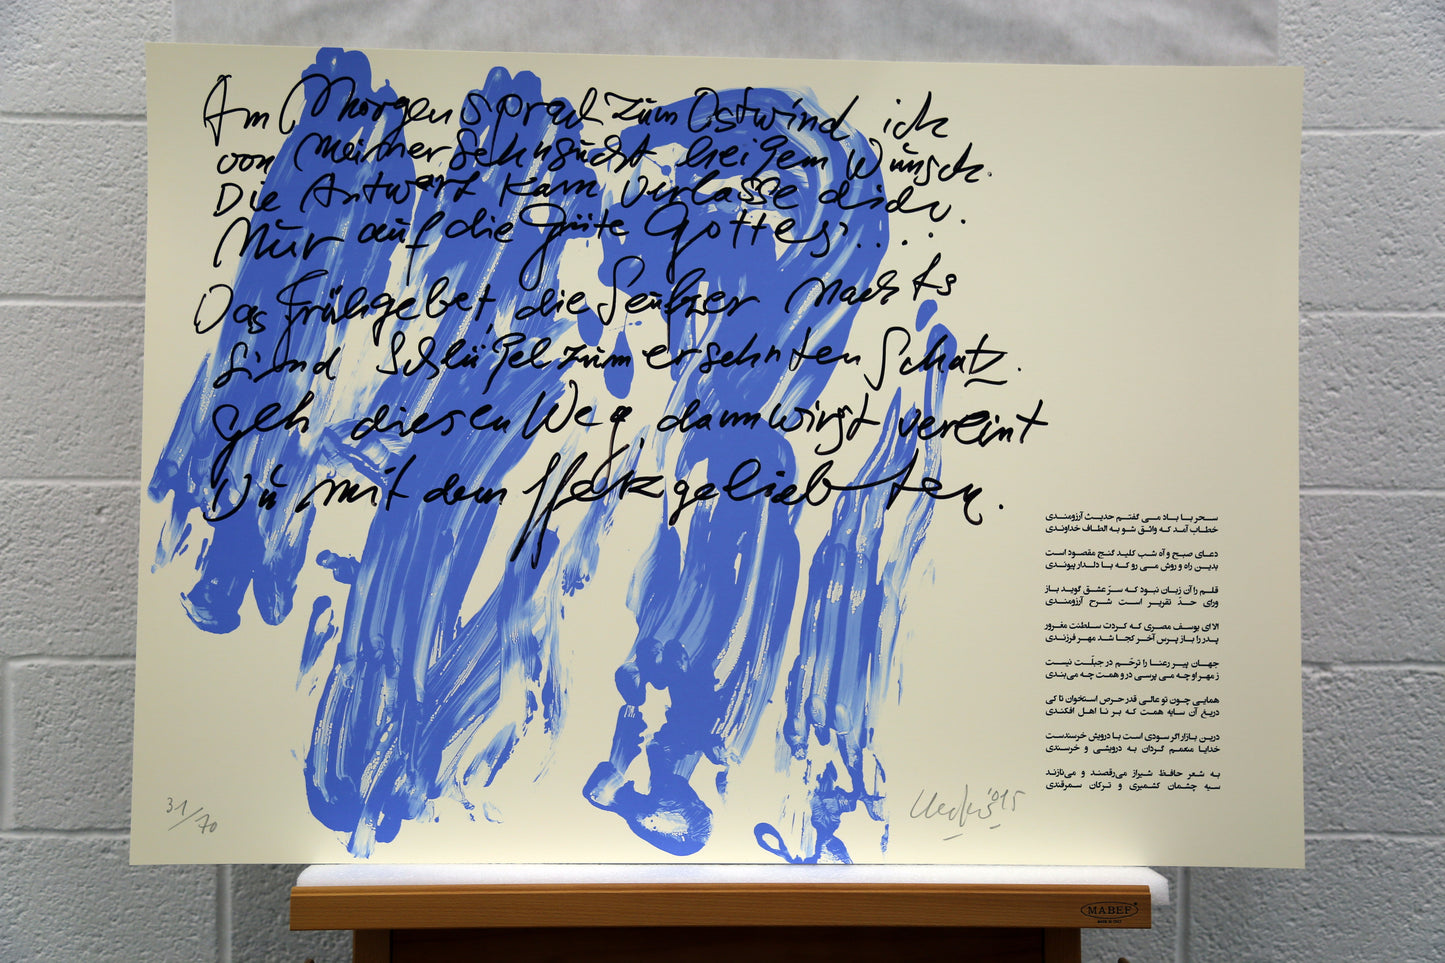 Am Morgen sprach zum Ostwind ich
von meiner Sehnsucht heißem Wunsch.
Die Antwort kam verlasse dich
Nur auf die Güte Gottes.....
Das Frühgebet, die Seufzer nachts
sind Schlüßel zum ersehnten Schatz.
geh diesen Weg, dann wirst vereint
Du mit dem Herzgeliebten.
سحر با باد می گفتم حدیث آرزومندی
خطاب آمد که واثق شو به الطاف خداوندی
دعای صبح و آه شب کلید گنج مقصود است
بدین راه و روش می رو که با دلدار پیوندی
قلم را آن زبان نبود که سرّ عشق گوید باز
ورای حدّ تقریر است شرح آرزومندی
الا ای یوسف مصری که کردت سلطنت مغرور
پدر را باز پرس آخر کجا شد مهر فرزندی
جهان پیر رعنا را ترحّم در جبلّت نیست
ز مهر او چه می پرسی درو همت چه می‌بندی
همایی چون تو عالی قدر حرص استخوان تا کی
دریغ آن سایه همت که بر نا اهل افکندی
درین بازار اگر سودی است با درویش خرسندست
خدایا منعمم گردان به درویشی و خرسندی
به شعر حافظ شیراز می‌رقصند و می‌نازند
سیه چشمان کشمیری و ترکان سمرقندی
31/70
015
MABEF